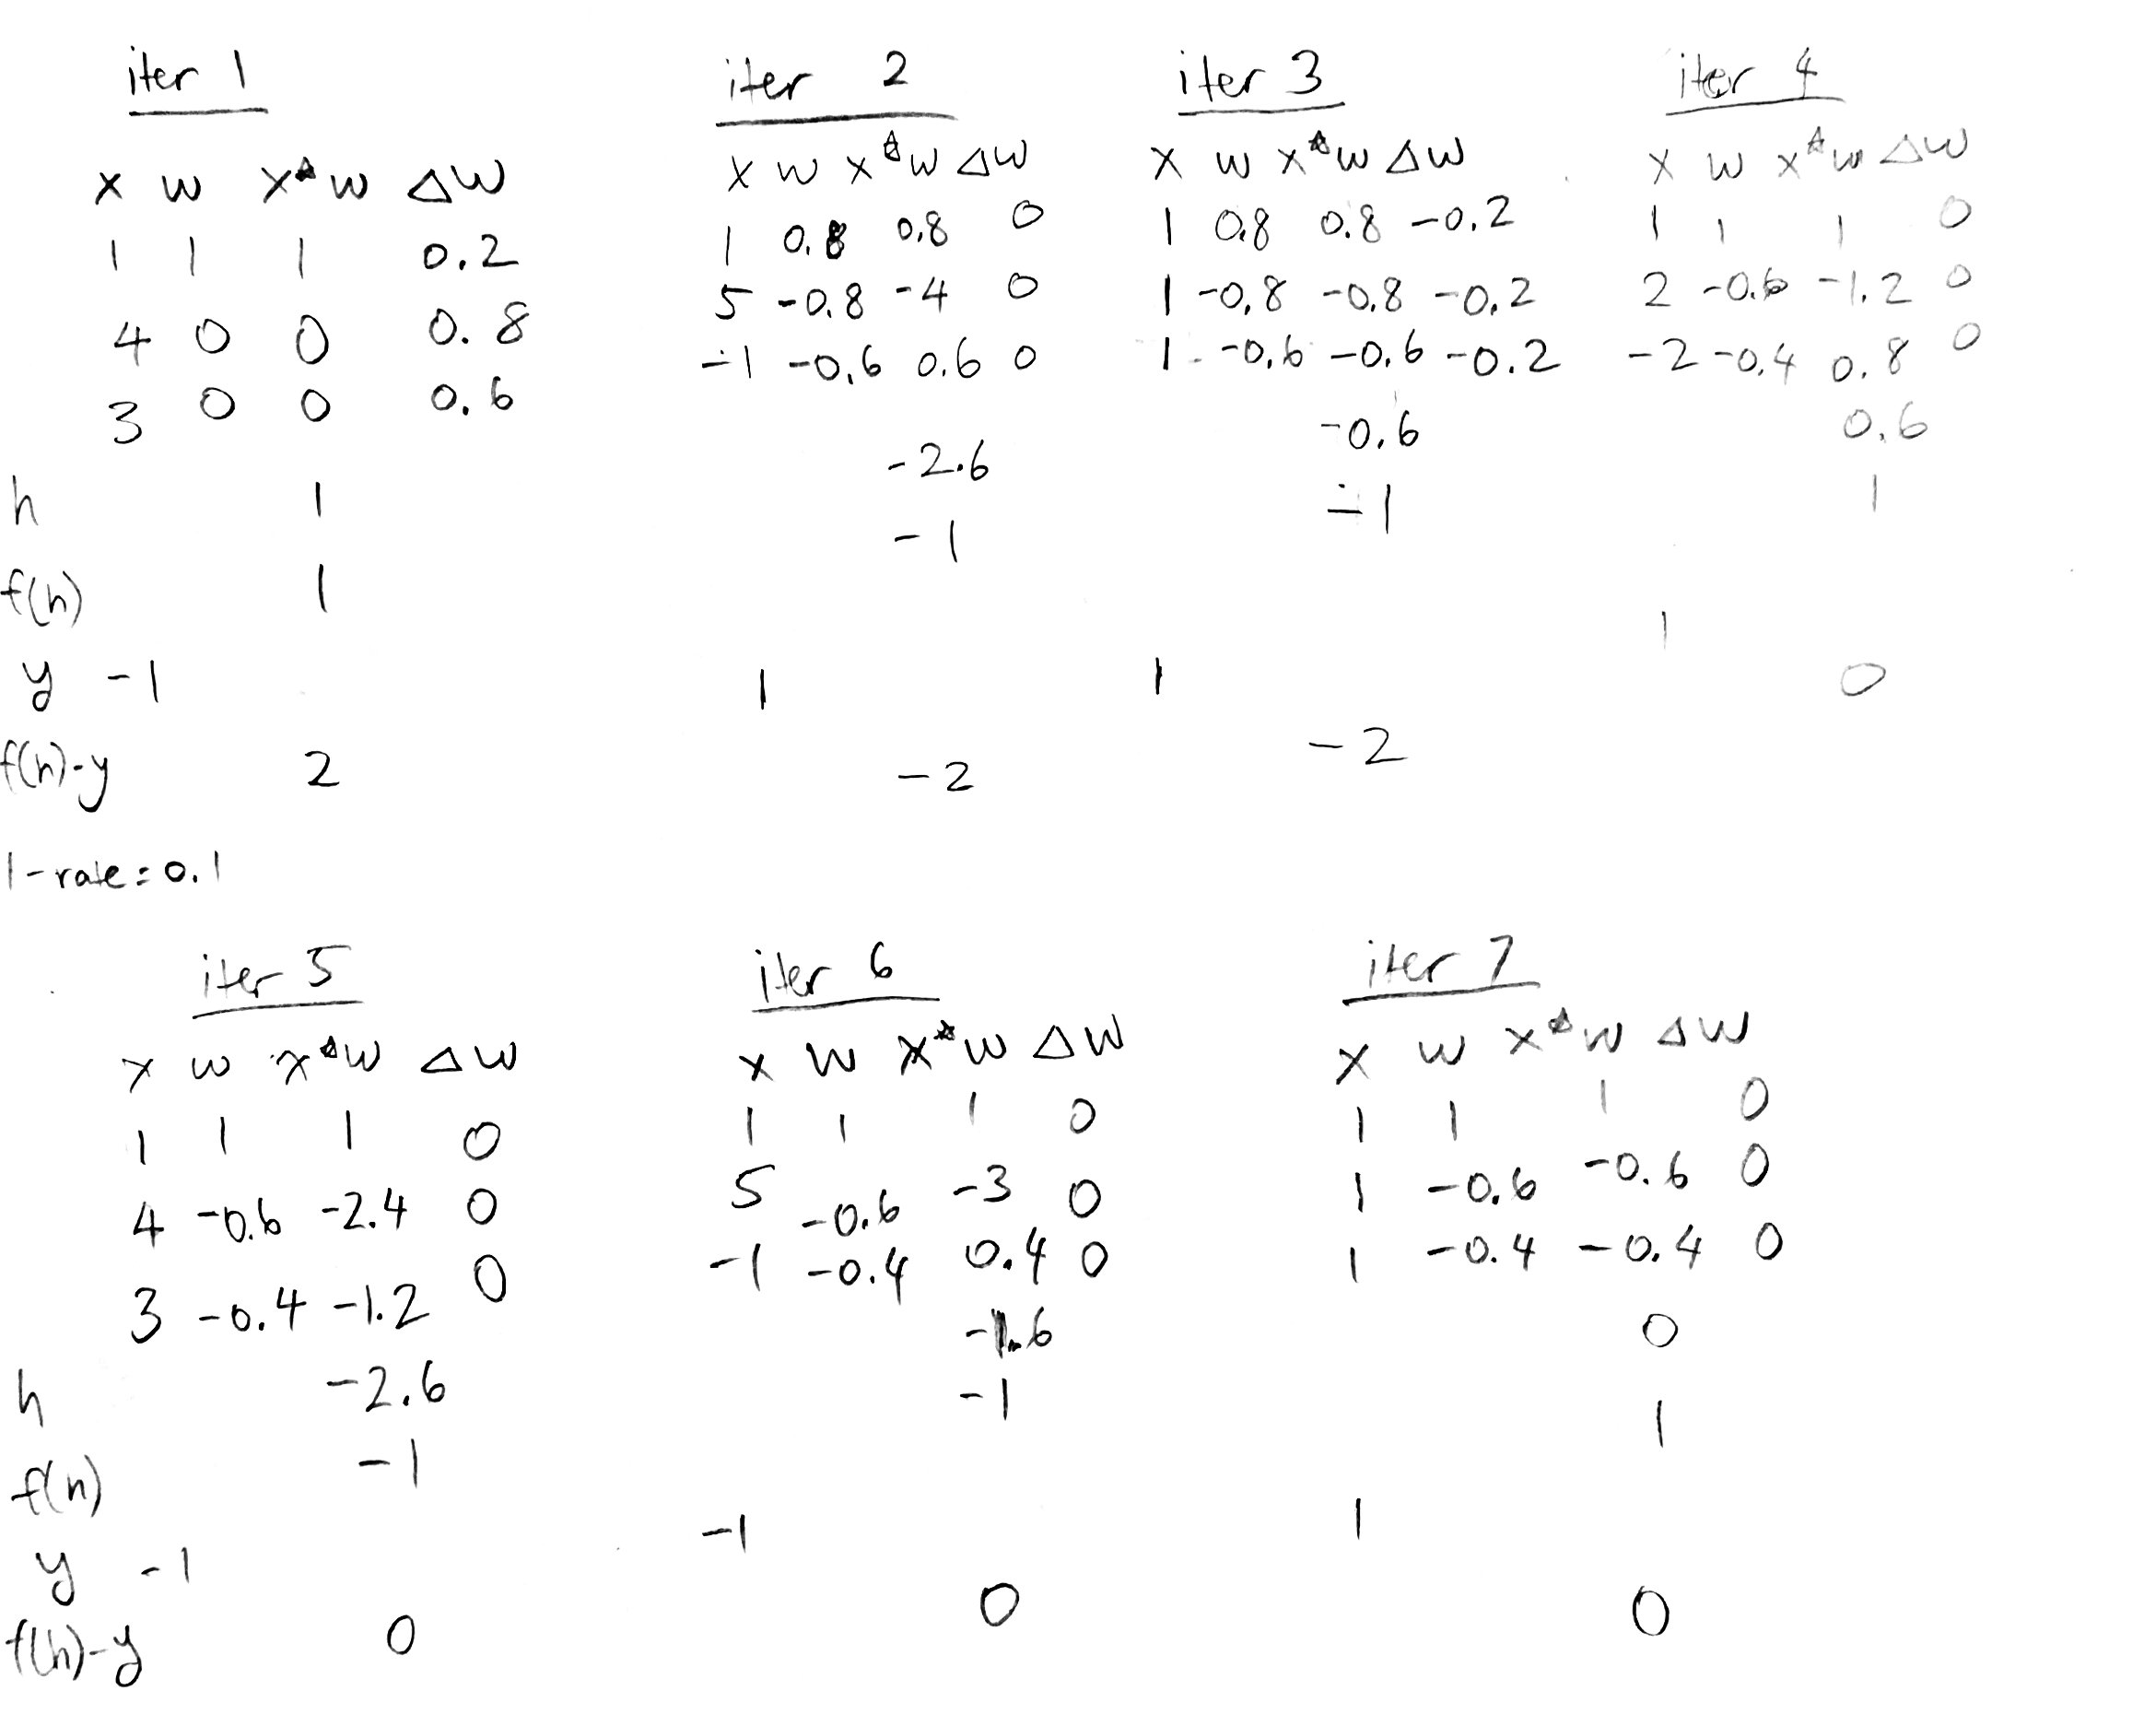 iter 1
x w x*w Δw
1 1 1 0.2
4 0 0 0.8
3 0 0 0.6
h 1
f(h) 1
y -1
f(h)-y 2
l-rate=0.1
iter 2
x w x*w Δw
1 0.8 0.8 0
5 -0.8 -4 0
-1 -0.6 0.6 0
-2.6
-1
1
-2
iter 3
x w x*w Δw
1 0.8 0.8 -0.2
1 -0.8 -0.8 -0.2
1 -0.6 -0.6 -0.2
-0.6
-1
1
-2
iter 4
x w x*w Δw
1 1 1 0
2 -0.6 -1.2 0
-2 -0.4 0.8 0
0.6
1
1
0
iter 5
x w x*w Δw
1 1 1 0
4 -0.6 -2.4 0
3 -0.4 -1.2 0
h -2.6
f(h) -1
y -1
f(h)-y 0
iter 6
x w x*w Δw
1 1 1 0
5 -0.6 -3 0
-1 -0.4 0.4 0
-1.6
-1
-1
0
iter 7
x w x*w Δw
1 1 1 0
1 -0.6 -0.6 0
1 -0.4 -0.4 0
0
1
1
0